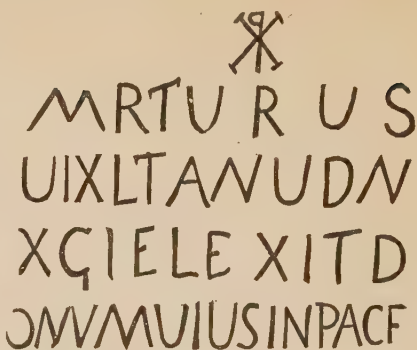 ☧
MRTURUS
UIXLTANUDN
XGIELEXITD
ONVMUIUSINPACF